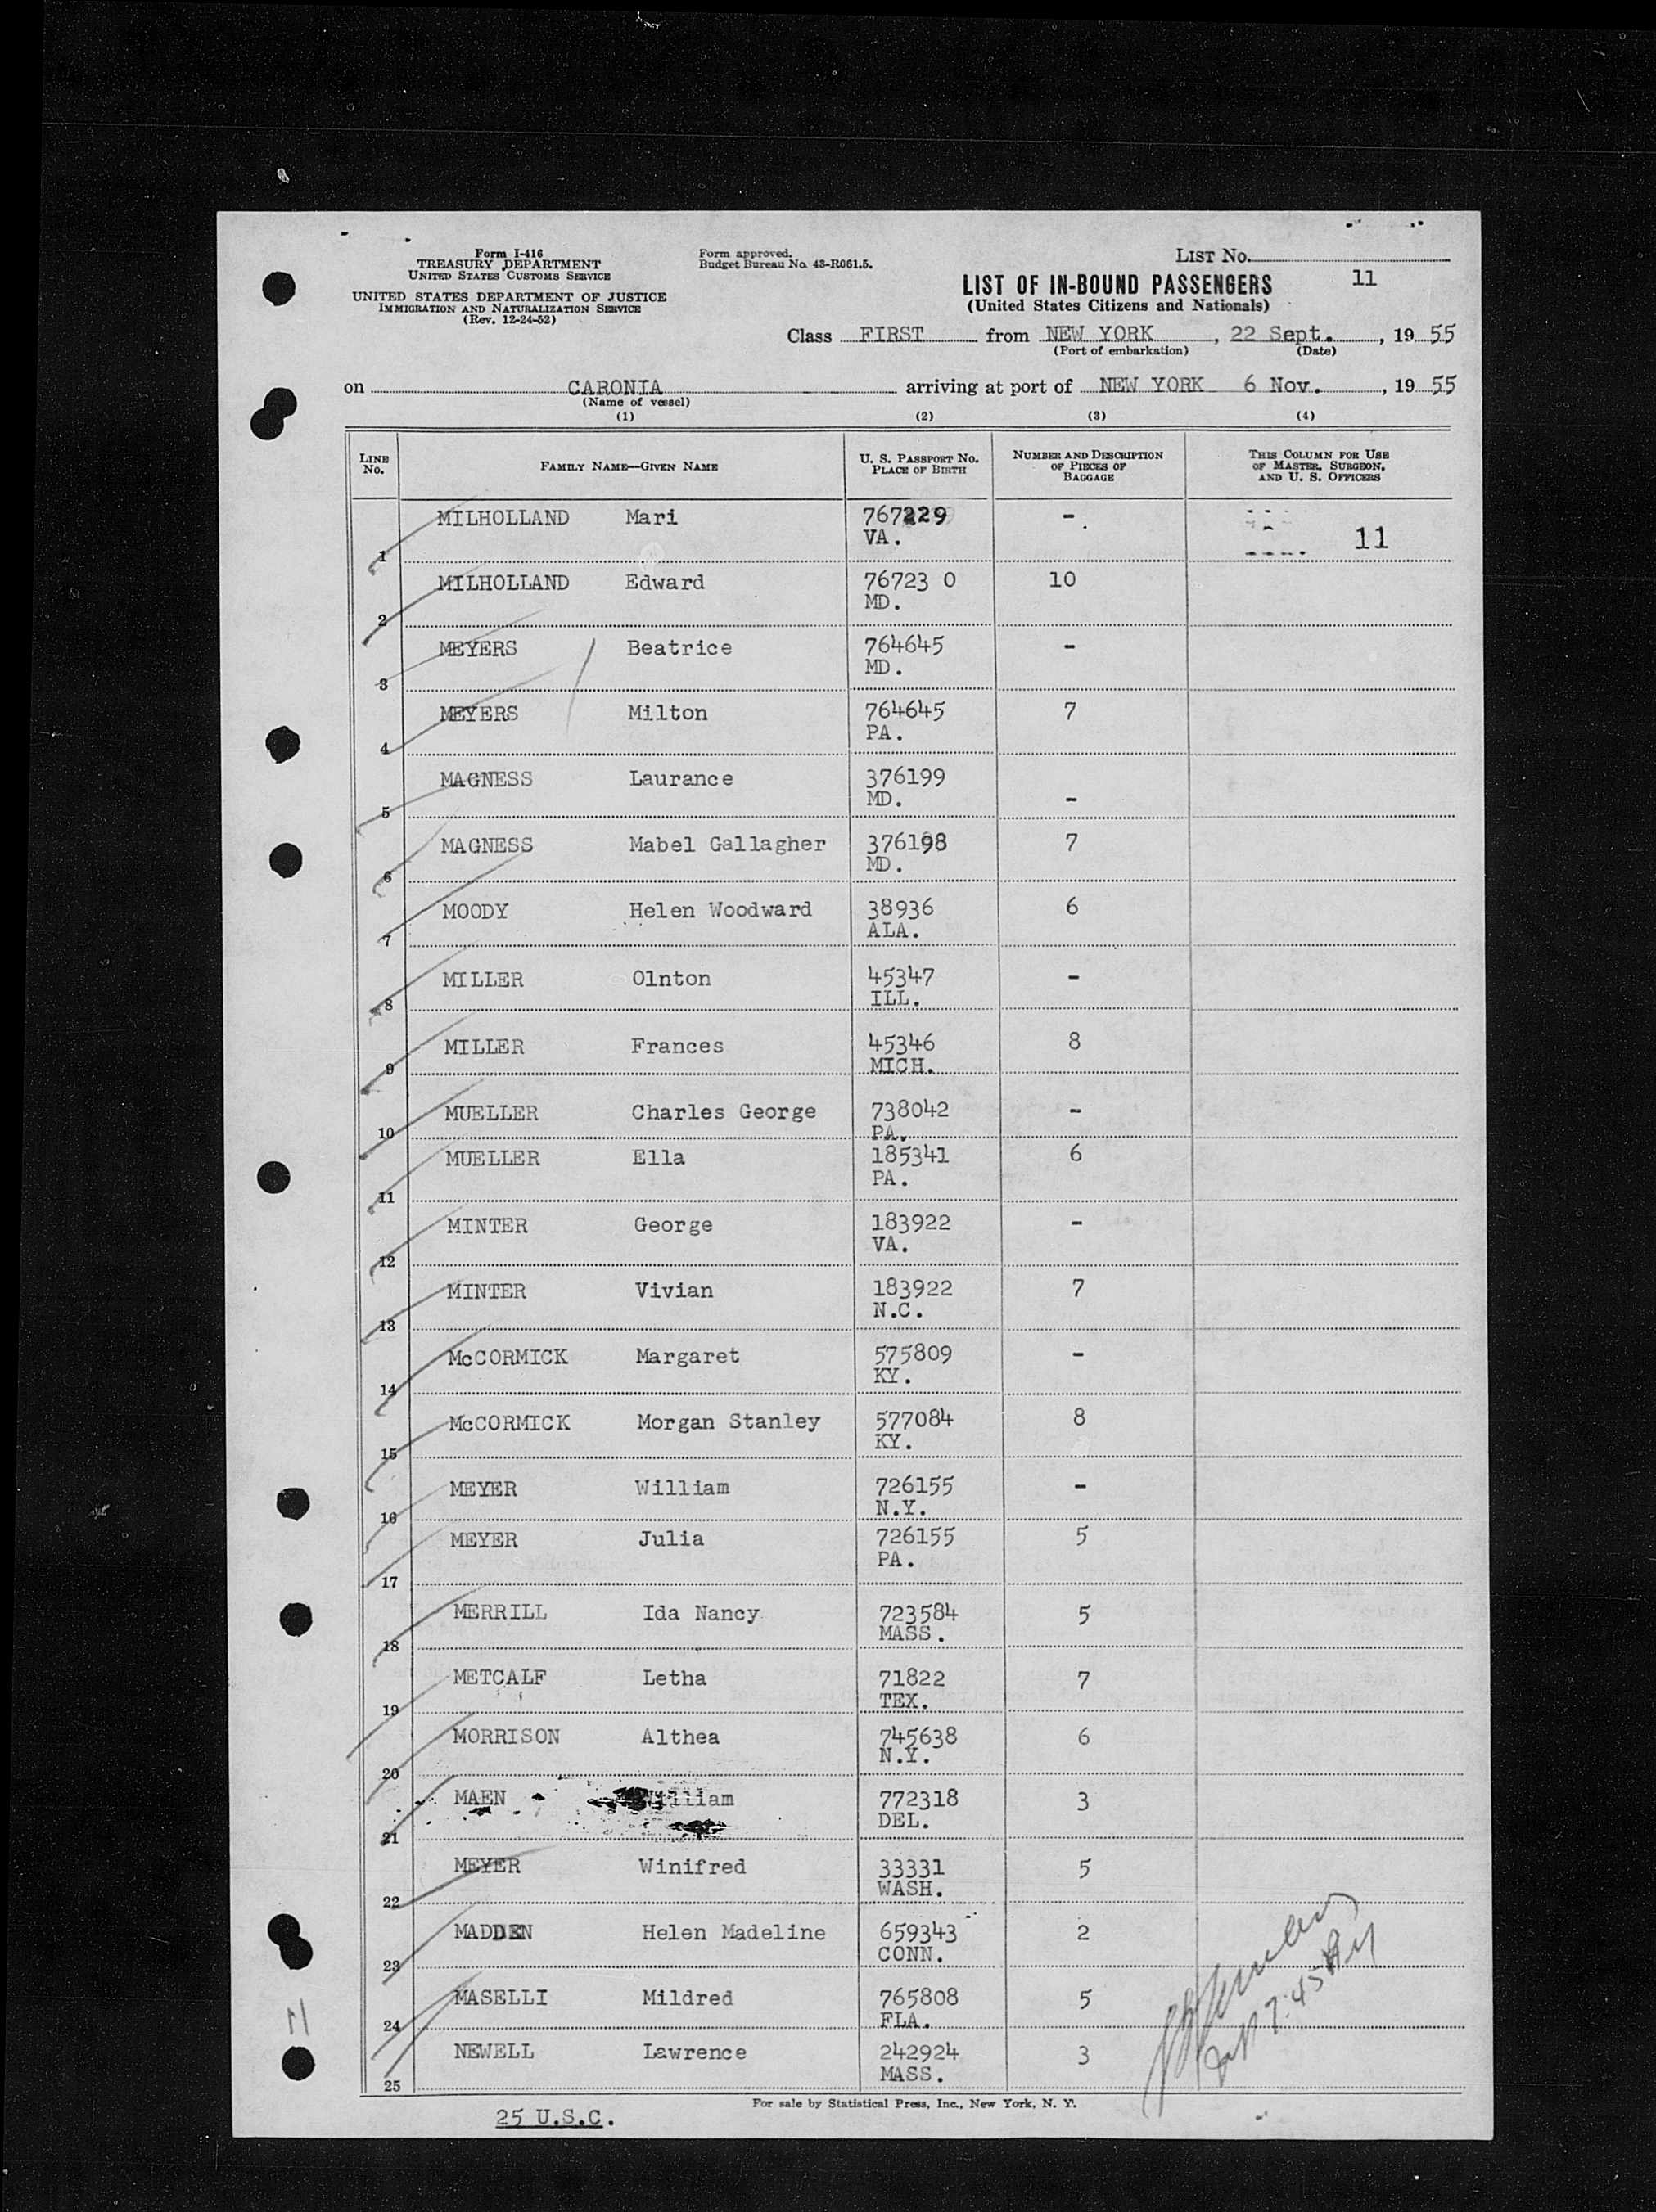 Form I-416
TREASURY DEPARTMENT
UNITED STATES CUSTOMS SERVICE
UNITED STATES DEPARTMENT OF JUSTICE
IMMIGRATION AND NATURALIZATION SERVICE
(Rev. 12-24-52)
Form approved.
Budget Bureau No. 43-R061.5.
LIST No.
11
LIST OF IN-BOUND PASSENGERS
(United States Citizens and Nationals)
Class FIRST from NEW YORK, 22 Sept., 19 55
(Port of embarkation) (Date)
on CARONIA arriving at port of NEW YORK 6 Nov., 19 55
(Name of vessel)
(1) (2) (3) (4)
LINE No. FAMILY NAME—GIVEN NAME U. S. PASSPORT No. PLACE OF BIRTH NUMBER AND DESCRIPTION OF PIECES OF BAGGAGE THIS COLUMN FOR USE OF MASTER, SURGEON, AND U. S. OFFICERS
1 MILHOLLAND Mari 767229 VA. - 11
2 MILHOLLAND Edward 76723 0 MD. 10
3 MEYERS Beatrice 764645 MD. -
4 MEYERS Milton 764645 PA. 7
5 MAGNESS Laurance 376199 MD. -
6 MAGNESS Mabel Gallagher 376198 MD. 7
7 MOODY Helen Woodward 38936 ALA. 6
8 MILLER Olnton 45347 ILL. -
9 MILLER Frances 45346 MICH. 8
10 MUELLER Charles George 738042 PA. -
11 MUELLER Ella 185341 PA. 6
12 MINTER George 183922 VA. -
13 MINTER Vivian 183922 N.C. 7
14 McCORMICK Margaret 575809 KY. -
15 McCORMICK Morgan Stanley 577084 KY. 8
16 MEYER William 726155 N.Y. -
17 MEYER Julia 726155 PA. 5
18 MERRILL Ida Nancy 723584 MASS. 5
19 METCALF Letha 71822 TEX. 7
20 MORRISON Althea 745638 N.Y. 6
21 MAEN William 772318 DEL. 3
22 MEYER Winifred 33331 WASH. 5
23 MADDEN Helen Madeline 659343 CONN. 2
24 MASELLI Mildred 765808 FLA. 5
25 NEWELL Lawrence 242924 MASS. 3
For sale by Statistical Press, Inc., New York, N. Y.
25 U.S.C.
11